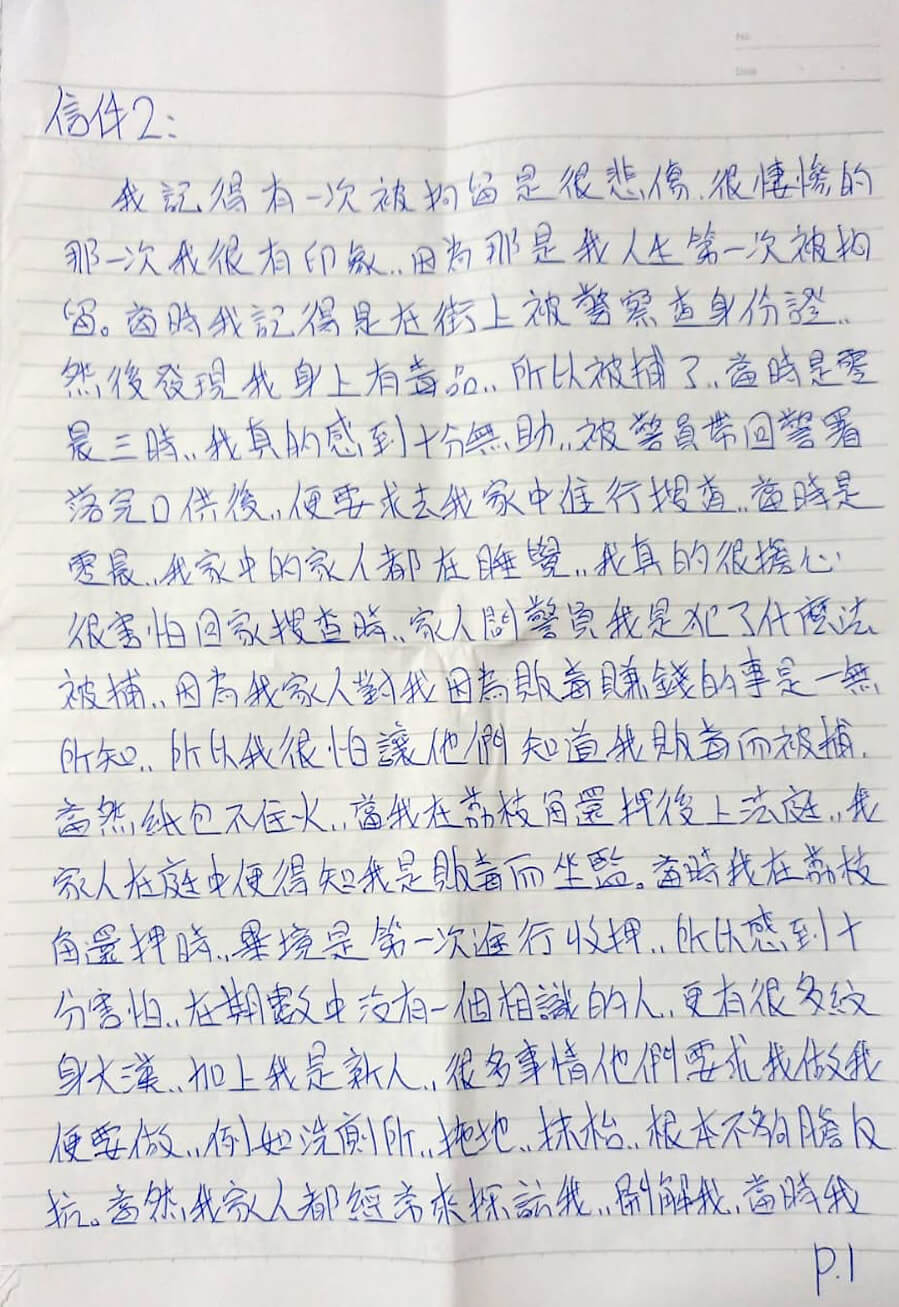 No.
Date
信件2:
我記得有一次被拘留是很悲傷、很悽慘的
那一次我很有印象,,因為那是我人生第一次被拘
留。當時我記得是在街上被警察查身份證,,
然後發現我身上有毒品,,所以被捕了,,當時是零
晨三時,,我真的感到十分無助,,被警員帶回警署
落完口供後,,便要求去我家中進行搜查,,當時是
零晨,,我家中的家人都在睡覺,,我真的很擔心
很害怕回家搜查時,,家人問警員我是犯了什麼法
被捕,,因為我家人對我因為販毒賺錢的事是一無
所知,,所以我很怕讓他們知道我販毒而被捕,
當然紙包不住火,,當我在荔枝角還押後上法庭,,我
家人在庭中便得知我是販毒而坐監。當時我在荔枝
角還押時,,畢境是第一次進行收押,,所以感到十
分害怕,,在期數中沒有一個相識的人,,更有很多紋
身大漢,,加上我是新人,,很多事情他們要求我做我
便要做,,例如洗廁所,,拖地,,抹枱,,根本不夠膽反
抗。當然我家人都經常來探訪我,,開解我,當時我
P.1